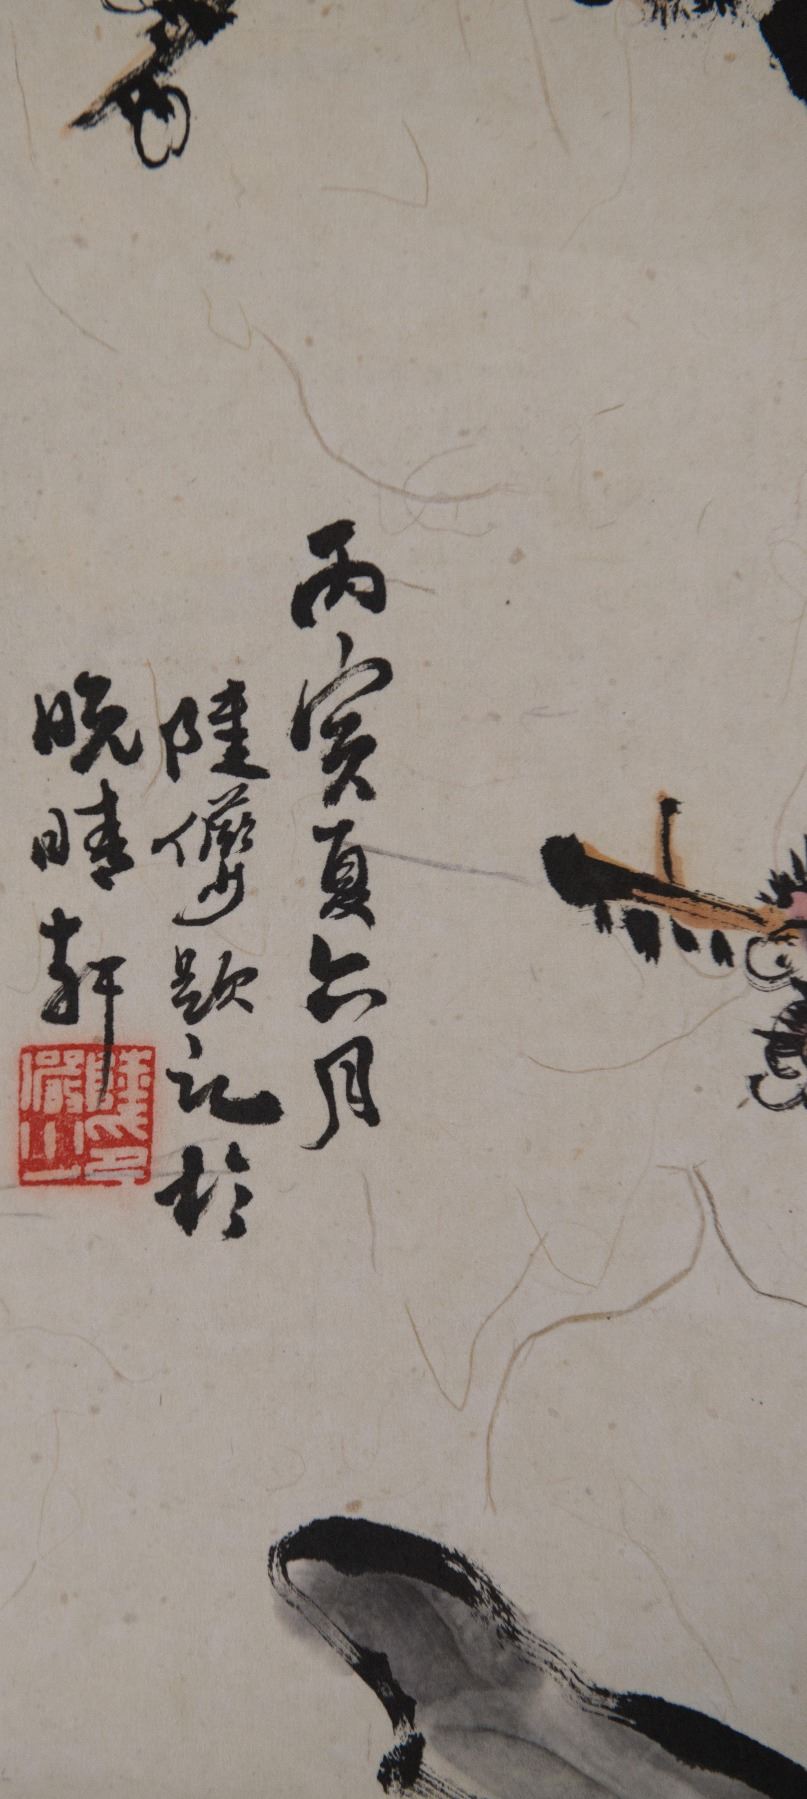 丙寅夏六月
陸儼少題記於
晚晴軒
陸氏
儼少